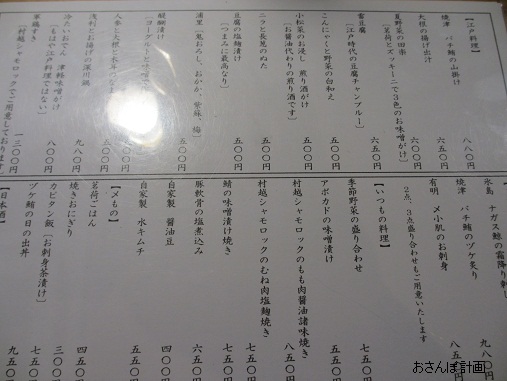 【江戸料理】
焼津 バチ鮪の山掛け 八八〇円
大根の揚げ出汁 六五〇円
夏野菜の田楽 六五〇円
〔茗荷とズッキーニで3色のお味噌がけ〕
雷豆腐 五〇〇円
〔江戸時代の豆腐チャンプルー〕
こんにゃくと野菜の白和え 五〇〇円
小松菜のお浸し 煎り酒がけ 五〇〇円
〔お醤油代わりの煎り酒です〕
ニラと長葱のぬた 五〇〇円
豆腐の塩麹漬け 五〇〇円
〔つまみに最高なり〕
浦里
醍醐漬け 五〇〇円
人参と大根と
浅利とお揚げの深川鍋 九八〇円
冷たいおでん 津軽味噌がけ 八〇〇円
〔もはや江戸料理ではない〕
軍鶏すき 一三〇〇円
〔村越シャモロックでご用意しております
氷島 ナガス鯨の霜降り刺し 九八〇
焼津 バチ鮪のヅケ炙り 八五〇
有明 メ小肌のお刺身
2点、3点盛り合わせもご用意いたします
【いつもの料理】
季節野菜の盛り合わせ 七五〇
アボカドの味噌漬け 五五〇
村越シャモロックのもも肉醤油諸味焼き 八五〇
村越シャモロックのむね肉塩麹焼き 七五〇
鯖の味噌漬け焼き 七五〇
豚軟骨の塩煮込み 六五〇
自家製 醤油豆
自家製 水キムチ
【〆もの】
茗荷ごはん 四五〇
焼きおにぎり 三〇〇
カピタン飯〔お刺身茶漬け〕 七五〇
ヅケ鮪の日の出丼 九五〇
【日本酒】
おさんぽ計画